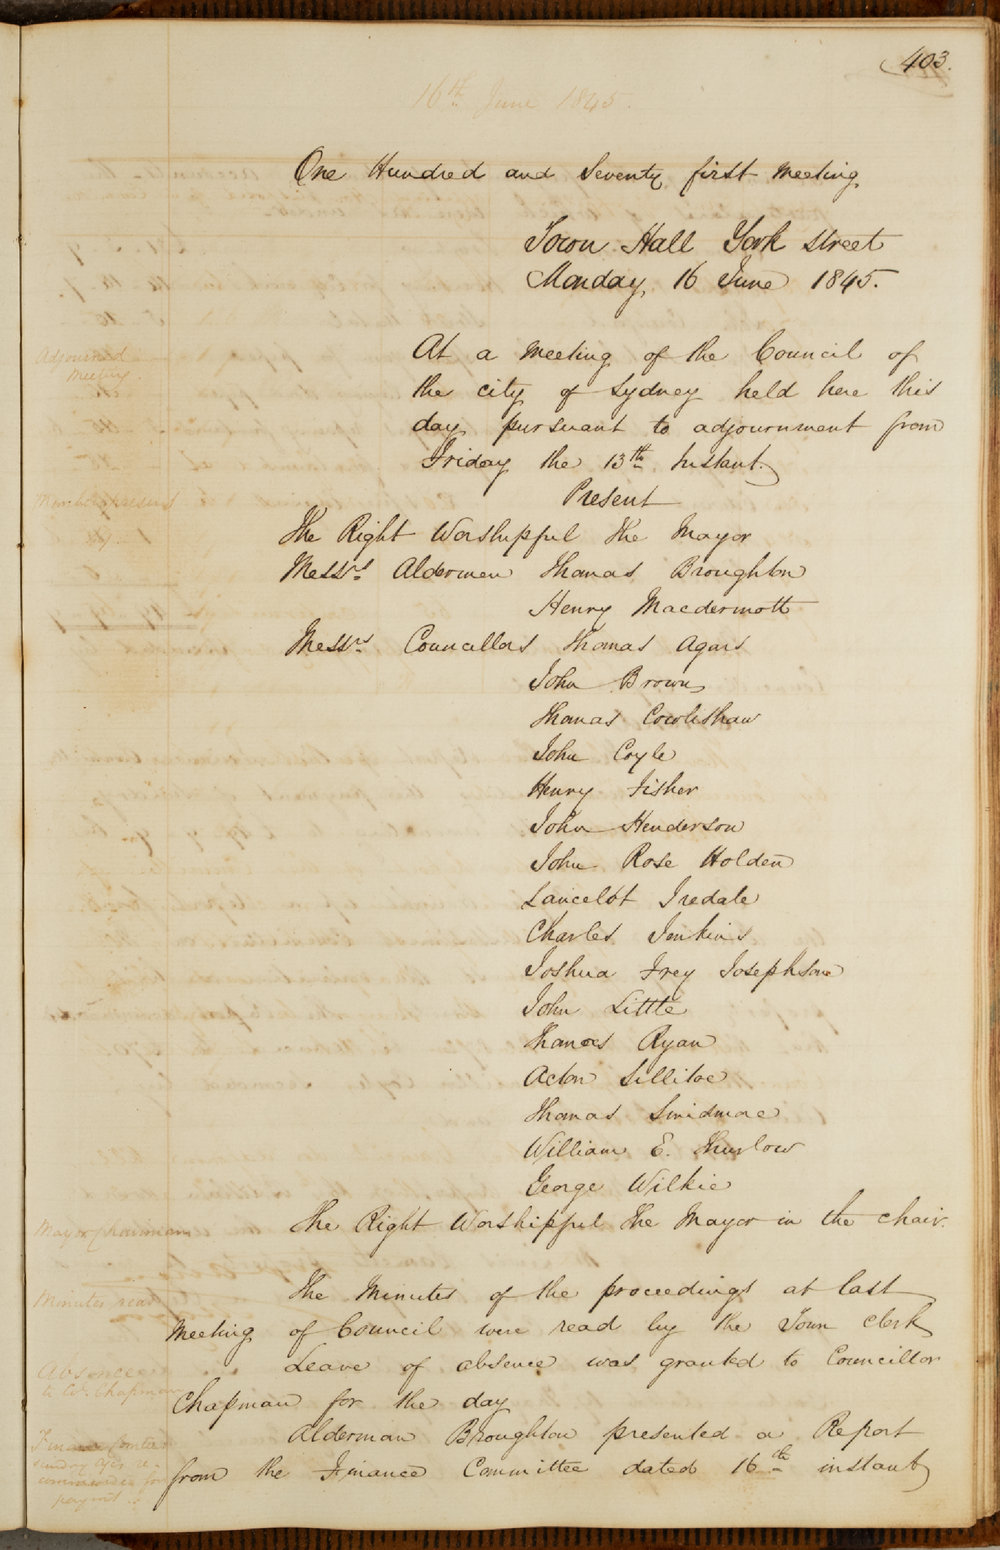 403.
16th June 1845.
One Hundred and Seventy first Meeting
Town Hall York Street
Monday, 16 June 1845.
Adjourned
Meeting
At a Meeting of the Council of
the city of Sydney held here this
day pursuant to adjournment from
Friday the 13th Instant.
Members present
Present
The Right Worshipful the Mayor
Messrs Aldermen Thomas Broughton
Henry Macdermott
Messrs Councillors Thomas Agars
John Brown
Thomas Cowlishaw
John Coyle
Henry Fisher
John Henderson
John Rose Holden
Lancelot Iredale
Charles Jenkins
Joshua Frey Josephson
John Little
Thomas Ryan
Acton Sillitoe
Thomas Smidmore
William E. Thurlow
George Wilkie
Mayor Chairman
The Right Worshipful the Mayor in the chair.
Minutes read
The Minutes of the proceedings at last
Meeting of Council were read by the Town Clerk
Absence
to Cr. Chapman
Leave of absence was granted to Councillor
Chapman for the day
Alderman Broughton presented a Report
from the Finance Committee dated 16th instant
Finance Comtee
sundry re-
commended for
paymt.